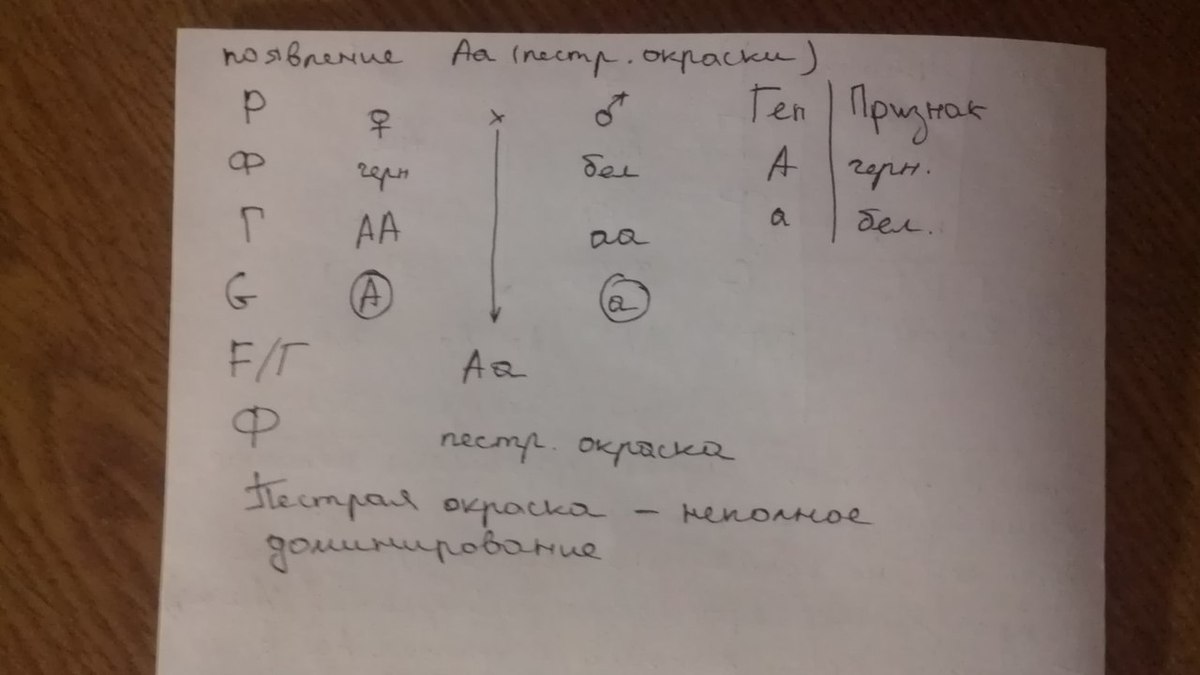 появление Аа (пестр. окраски)
Р ♀ × ♂ Ген Признак
Ф черн бел А черн.
Г АА аа а бел.
G А а
F/Г Аа
Ф пестр. окраска
Пестрая окраска – неполное
доминирование